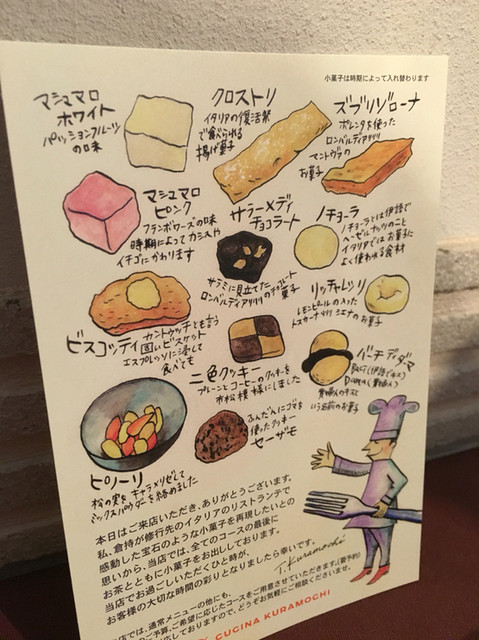 小菓子は時期によって入れ替わります
マシュマロ
ホワイト
パッションフルーツ
の味
クロストリ
イタリアの復活祭
で食べられる
揚げ菓子
ズブリゾローナ
ポレンタを使った
ロンバルディア州
マントヴァの
お菓子
マシュマロ
ピンク
フランボワーズの味
時期によってカシスや
イチゴにかわります
サラーメディ
チョコラート
サラミに見立てた
ロンバルディア州のチョコレート
菓子
ノチョーラ
ノチョーラとは伊語で
ヘーゼルナッツのこと
イタリアではお菓子に
よく使われる食材
リッチャレッリ
レモンピールの入った
トスカーナ州シエナのお菓子
ビスコッティ
カントゥッチとも言う
固いビスケット
エスプレッソに浸して
食べても
二色クッキー
プレーンとコーヒーのクッキーを
市松模様にしました
バーチディダーマ
いう名前のお菓子
ふんだんにゴマを
使ったクッキー
セーザモ
ピノーリ
松の実をキャラメリゼして
ミックスパウダーを絡めました
本日はご来店いただき、ありがとうございます。
私、倉持が修行先のイタリアのリストランテで
感動した宝石のような小菓子を再現したいとの
思いから、当店では、全てのコースの最後に
お茶とともに小菓子をお出ししております。
当店でお過ごしいただくひと時が、
お客様の大切な時間の彩りとなりましたら幸いです。
T.Kuramochi
店では、通常メニューの他にも、
ご予算、ご希望に応じたコースをご用意させていただきます。(要予約)
しておりますので、どうぞお気軽にご相談くださいませ。
CUCINA KURAMOCHI